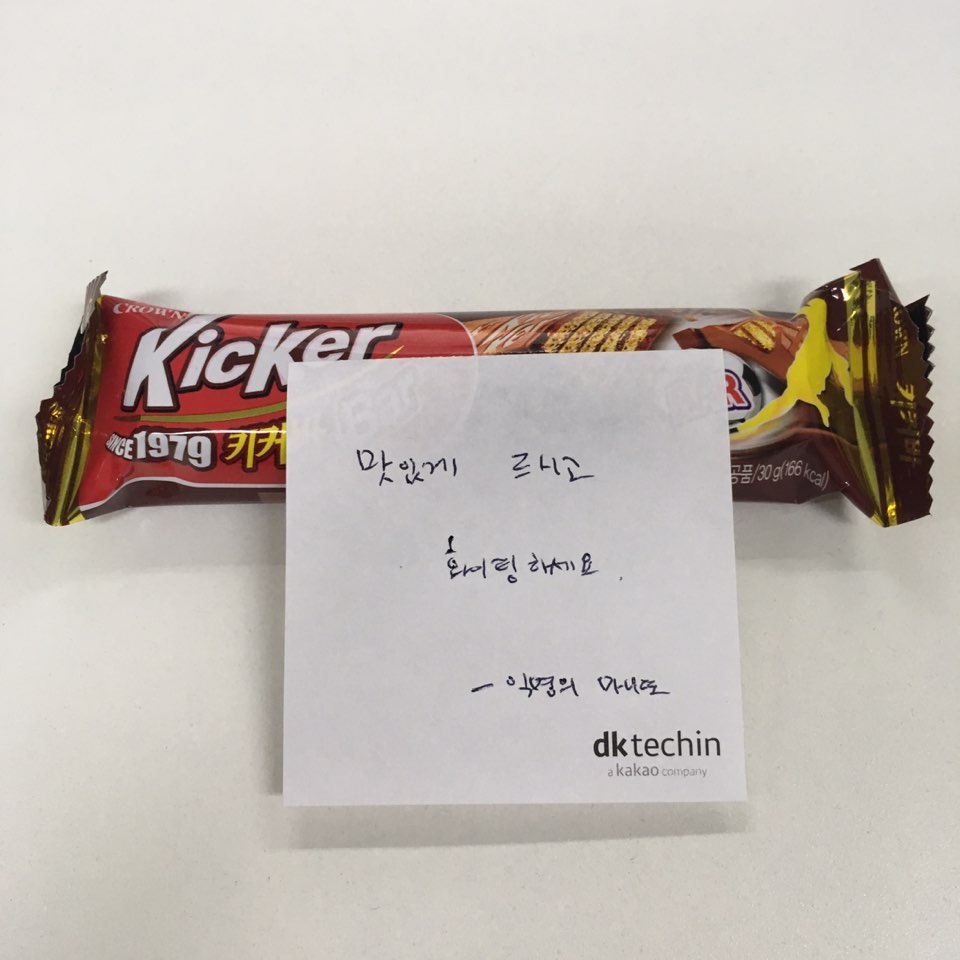 CROWN
Kicker
SINCE 1979 키커
공품/30g(166 kcal)
맛있게 르시고
화이팅하세요.
- 익명의 마니또
dktechin
a kakao company